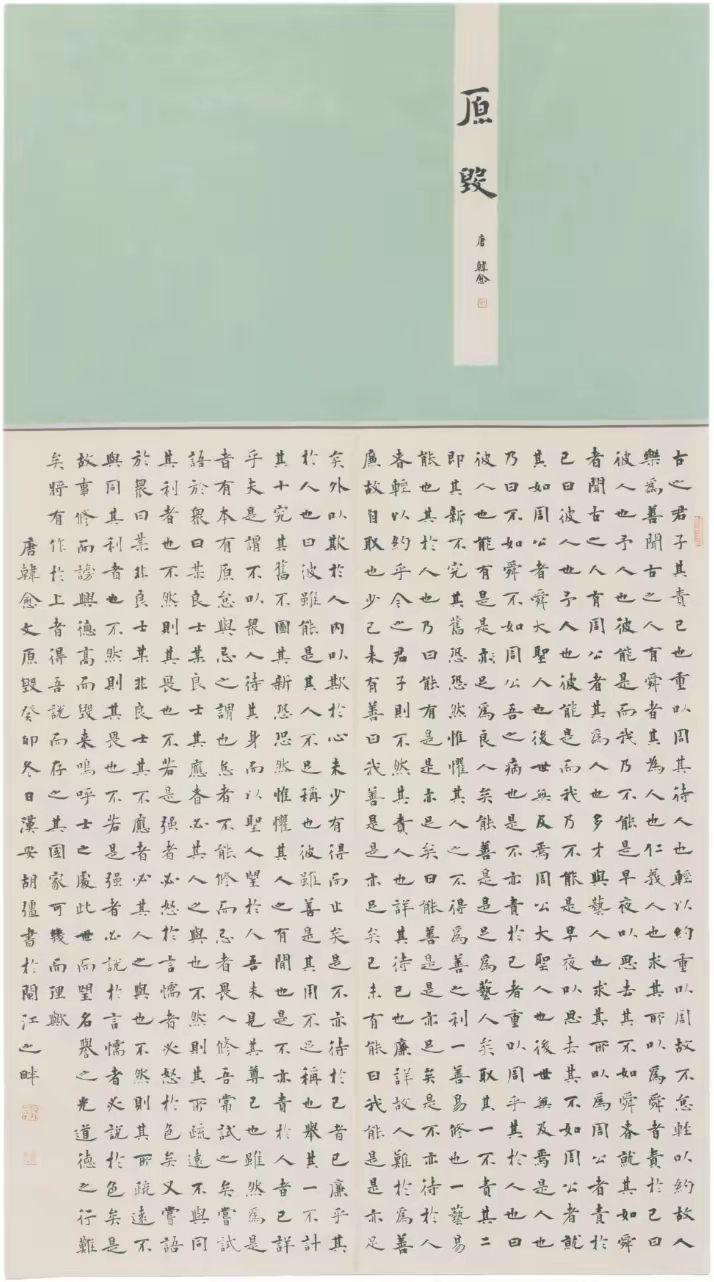 原毀
唐 韓愈
古之君子其責己也重以周其待人也輕以約重以周故不怠輕以約故人
樂為善聞古之人有舜者其為人也仁義人也求其所以為舜者責於己曰
彼人也予人也彼能是而我乃不能是早夜以思去其不如舜者就其如舜
者聞古之人有周公者其為人也多才與藝人也求其所以為周公者責於
己曰彼人也予人也彼能是而我乃不能是早夜以思去其不如周公者就
其如周公者舜大聖人也後世無及焉周公大聖人也後世無及焉是人也
乃曰不如舜不如周公吾之病也是不亦責於己者重以周乎其於人也曰
彼人也能有是是亦足為良人矣能善是是足為藝人矣取其一不責其二
即其新不究其舊恐恐然惟懼其人之不得為善之利一善易修也一藝易
能也其於人也乃曰能有是是亦足矣曰能善是是亦足矣是不亦待於人
者輕以約乎今之君子則不然其責人也詳其待己也廉詳故人難於為善
廉故自取也少己未有善曰我善是是亦足矣己未有能曰我能是是亦足
矣外以欺於人內以欺於心未少有得而止矣是不亦待於己者已廉乎其
於人也曰彼雖能是其人不足稱也彼雖善是其用不足稱也舉其一不計
其十究其舊不圖其新恐恐然惟懼其人之有聞也是不亦責於人者已詳
乎夫是謂不以眾人待其身而以聖人望於人吾未見其尊己也雖然為是
者有本有原怠與忌之謂也怠者不能修而忌者畏人修吾常試之矣嘗試
語於眾曰某良士某良士其應者必其人之與也不然則其所疏遠不與同
其利者也不然則其畏也不若是强者必怒於言懦者必怒於色矣又嘗語
於眾曰某非良士某非良士其不應者必其人之與也不然則其所疏遠不
與同其利者也不然則其畏也不若是强者必說於言懦者必說於色矣是
故事修而謗興德高而毀來嗚呼士之處此世而望名譽之光道德之行難
矣將有作於上者得吾說而存之其國家可幾而理歟
唐韓愈文原毀癸卯冬日漢安胡彊書於江之畔